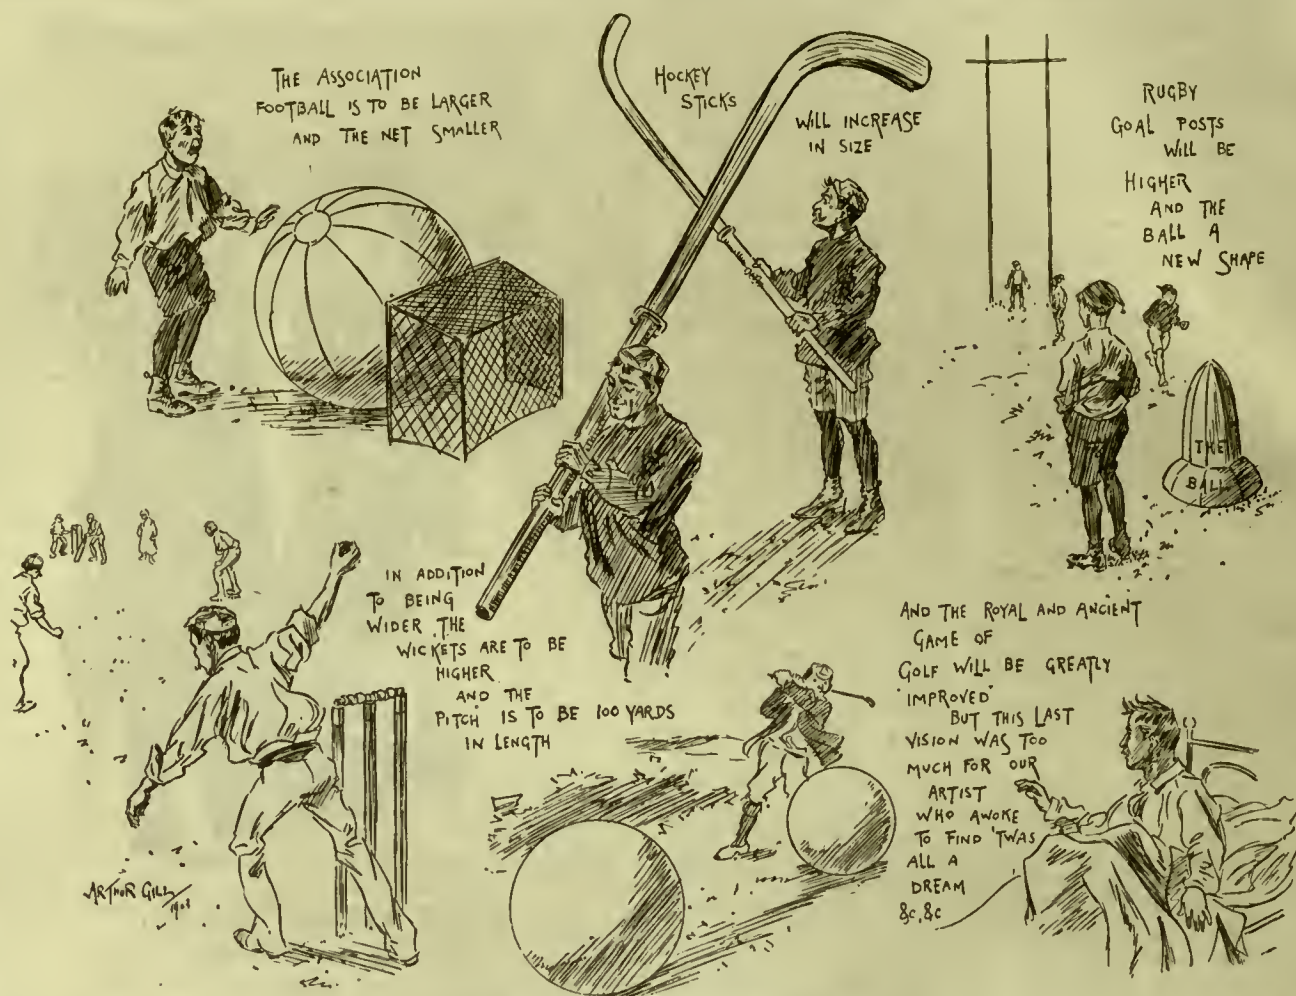 THE ASSOCIATION
FOOTBALL IS TO BE LARGER
AND THE NET SMALLER
HOCKEY
STICKS
WILL INCREASE
IN SIZE
RUGBY
GOAL POSTS
WILL BE
HIGHER
AND THE
BALL A
NEW SHAPE
THE
BALL
IN ADDITION
TO BEING
WIDER THE
WICKETS ARE TO BE
HIGHER
AND THE
PITCH IS TO BE 100 YARDS
IN LENGTH
AND THE ROYAL AND ANCIENT
GAME OF
GOLF WILL BE GREATLY
"IMPROVED"
BUT THIS LAST
VISION WAS TOO
MUCH FOR OUR
ARTIST
WHO AWOKE
TO FIND 'TWAS
ALL A
DREAM
&c, &c
ARTHUR GILL